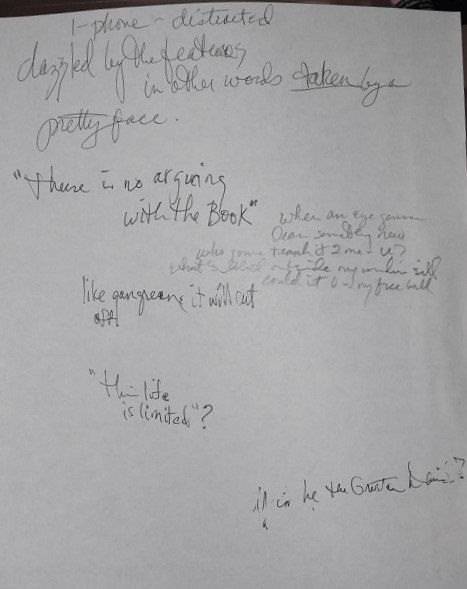 1-phone - distracted
dazzled by the features
in other words taken by a
pretty face.
"there is no arguing
with the Book"
when an eye gonna
learn somethng new
who gonna teach it 2 me - u?
what's outside my window sill
could it b - my free will
like gangreene it will out
"this life
is limited"?
is he the